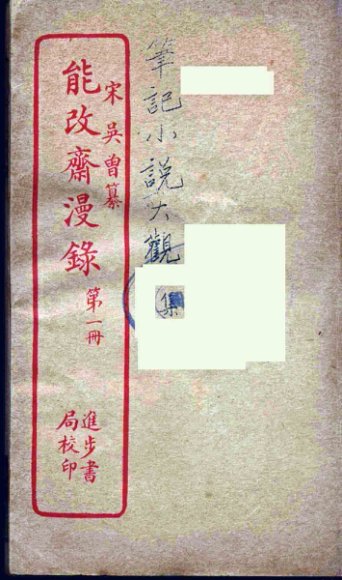 筆記小説大觀
集
宋吳曾纂
能改齋漫錄
第一冊
進步書
局校印